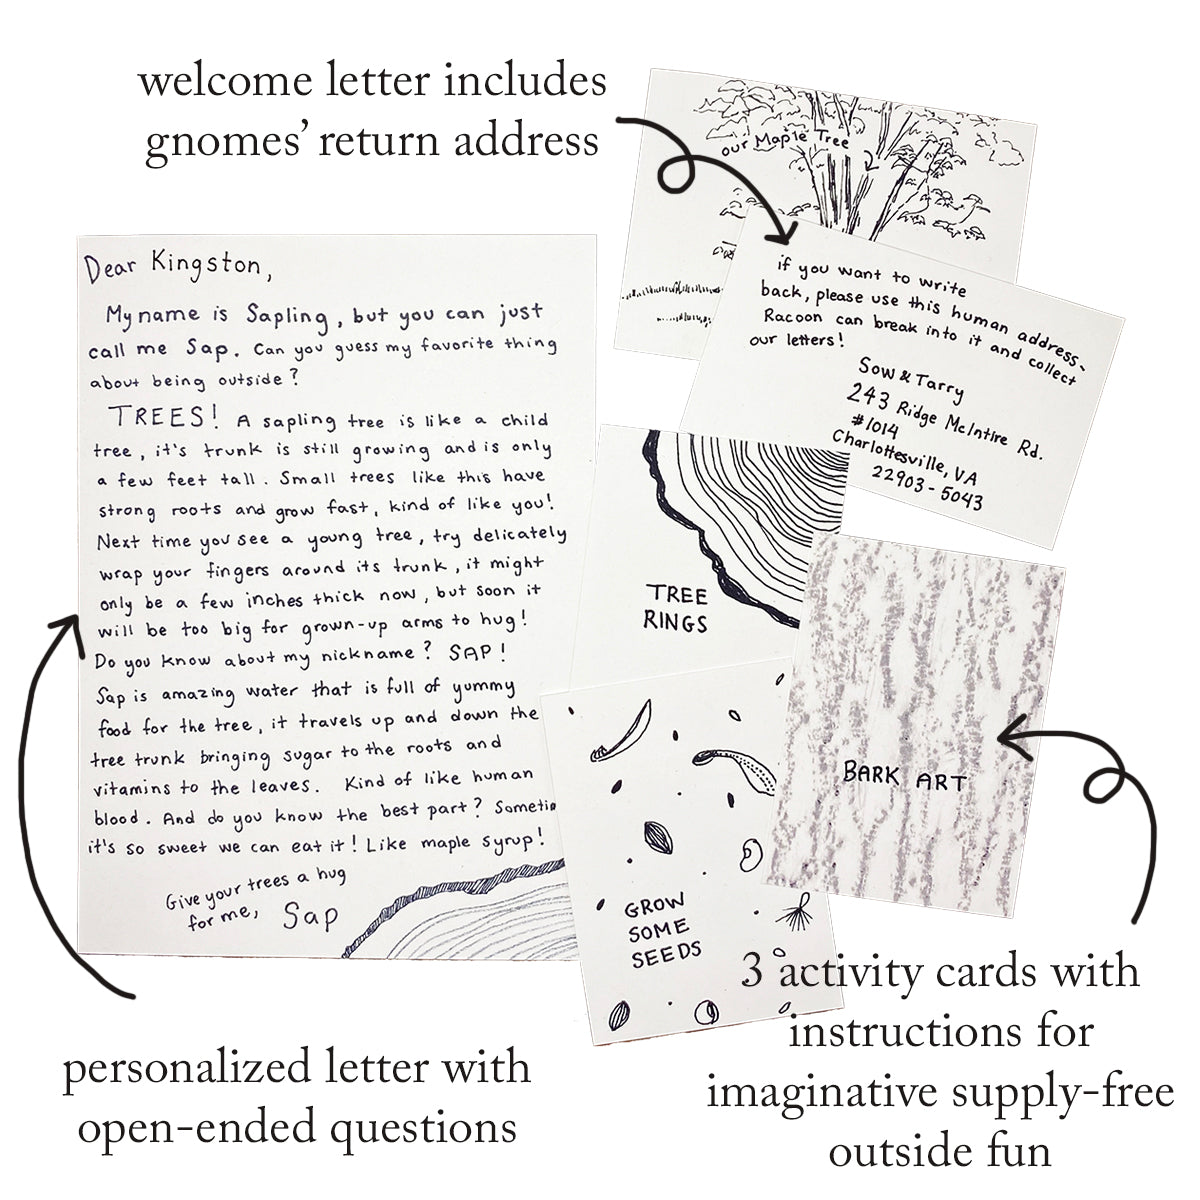 welcome letter includes
gnomes' return address
our Maple Tree
if you want to write
back, please use this human address.
Racoon can break into it and collect
our letters!
Sow & Tarry
243 Ridge McIntire Rd.
#1014
Charlottesville, VA
22903-5043
Dear Kingston,
My name is Sapling, but you can just
call me Sap. Can you guess my favorite thing
about being outside?
TREES! A sapling tree is like a child
tree, it's trunk is still growing and is only
a few feet tall. Small trees like this have
strong roots and grow fast, kind of like you!
Next time you see a young tree, try delicately
wrap your fingers around its trunk, it might
only be a few inches thick now, but soon it
will be too big for grown-up arms to hug!
Do you know about my nickname? SAP!
Sap is amazing water that is full of yummy
food for the tree, it travels up and down the
tree trunk bringing sugar to the roots and
vitamins to the leaves. Kind of like human
blood. And do you know the best part? Sometim
it's so sweet we can eat it! Like maple syrup!
Give your trees a hug
for me, Sap
TREE
RINGS
BARK ART
GROW
SOME
SEEDS
personalized letter with
open-ended questions
3 activity cards with
instructions for
imaginative supply-free
outside fun